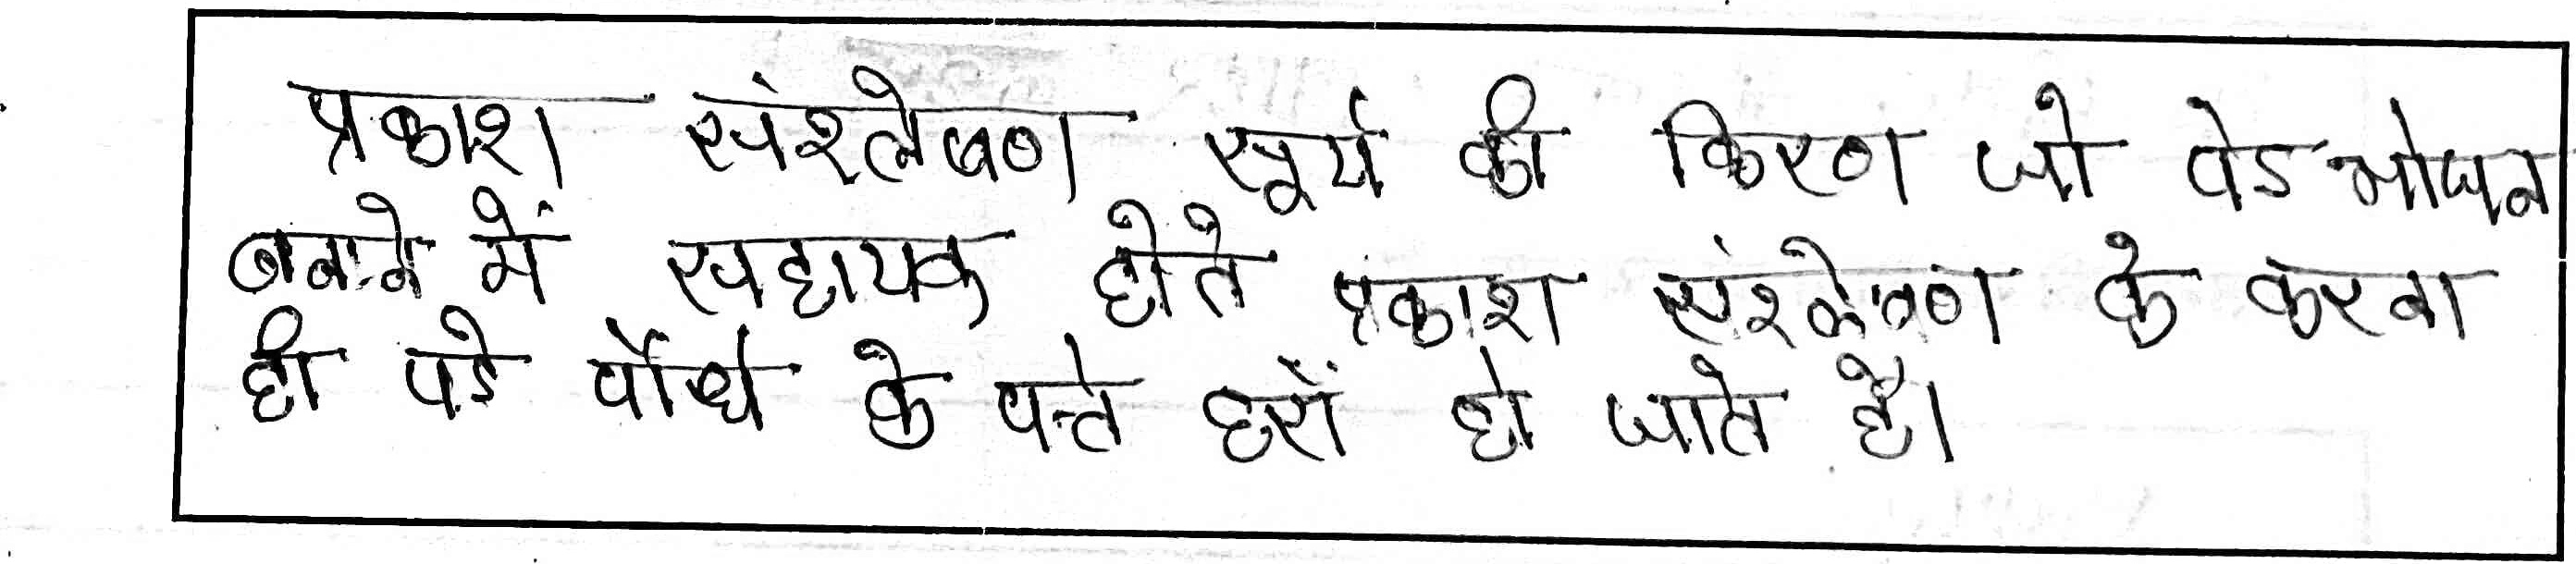 प्रकाश संश्लेषण सूर्य की किरण जो पेड भोजन
बनाने में सहायक होते प्रकाश संश्लेषण के करवा
ही पडे पौधे के पत्ते हरों हो जाते है।